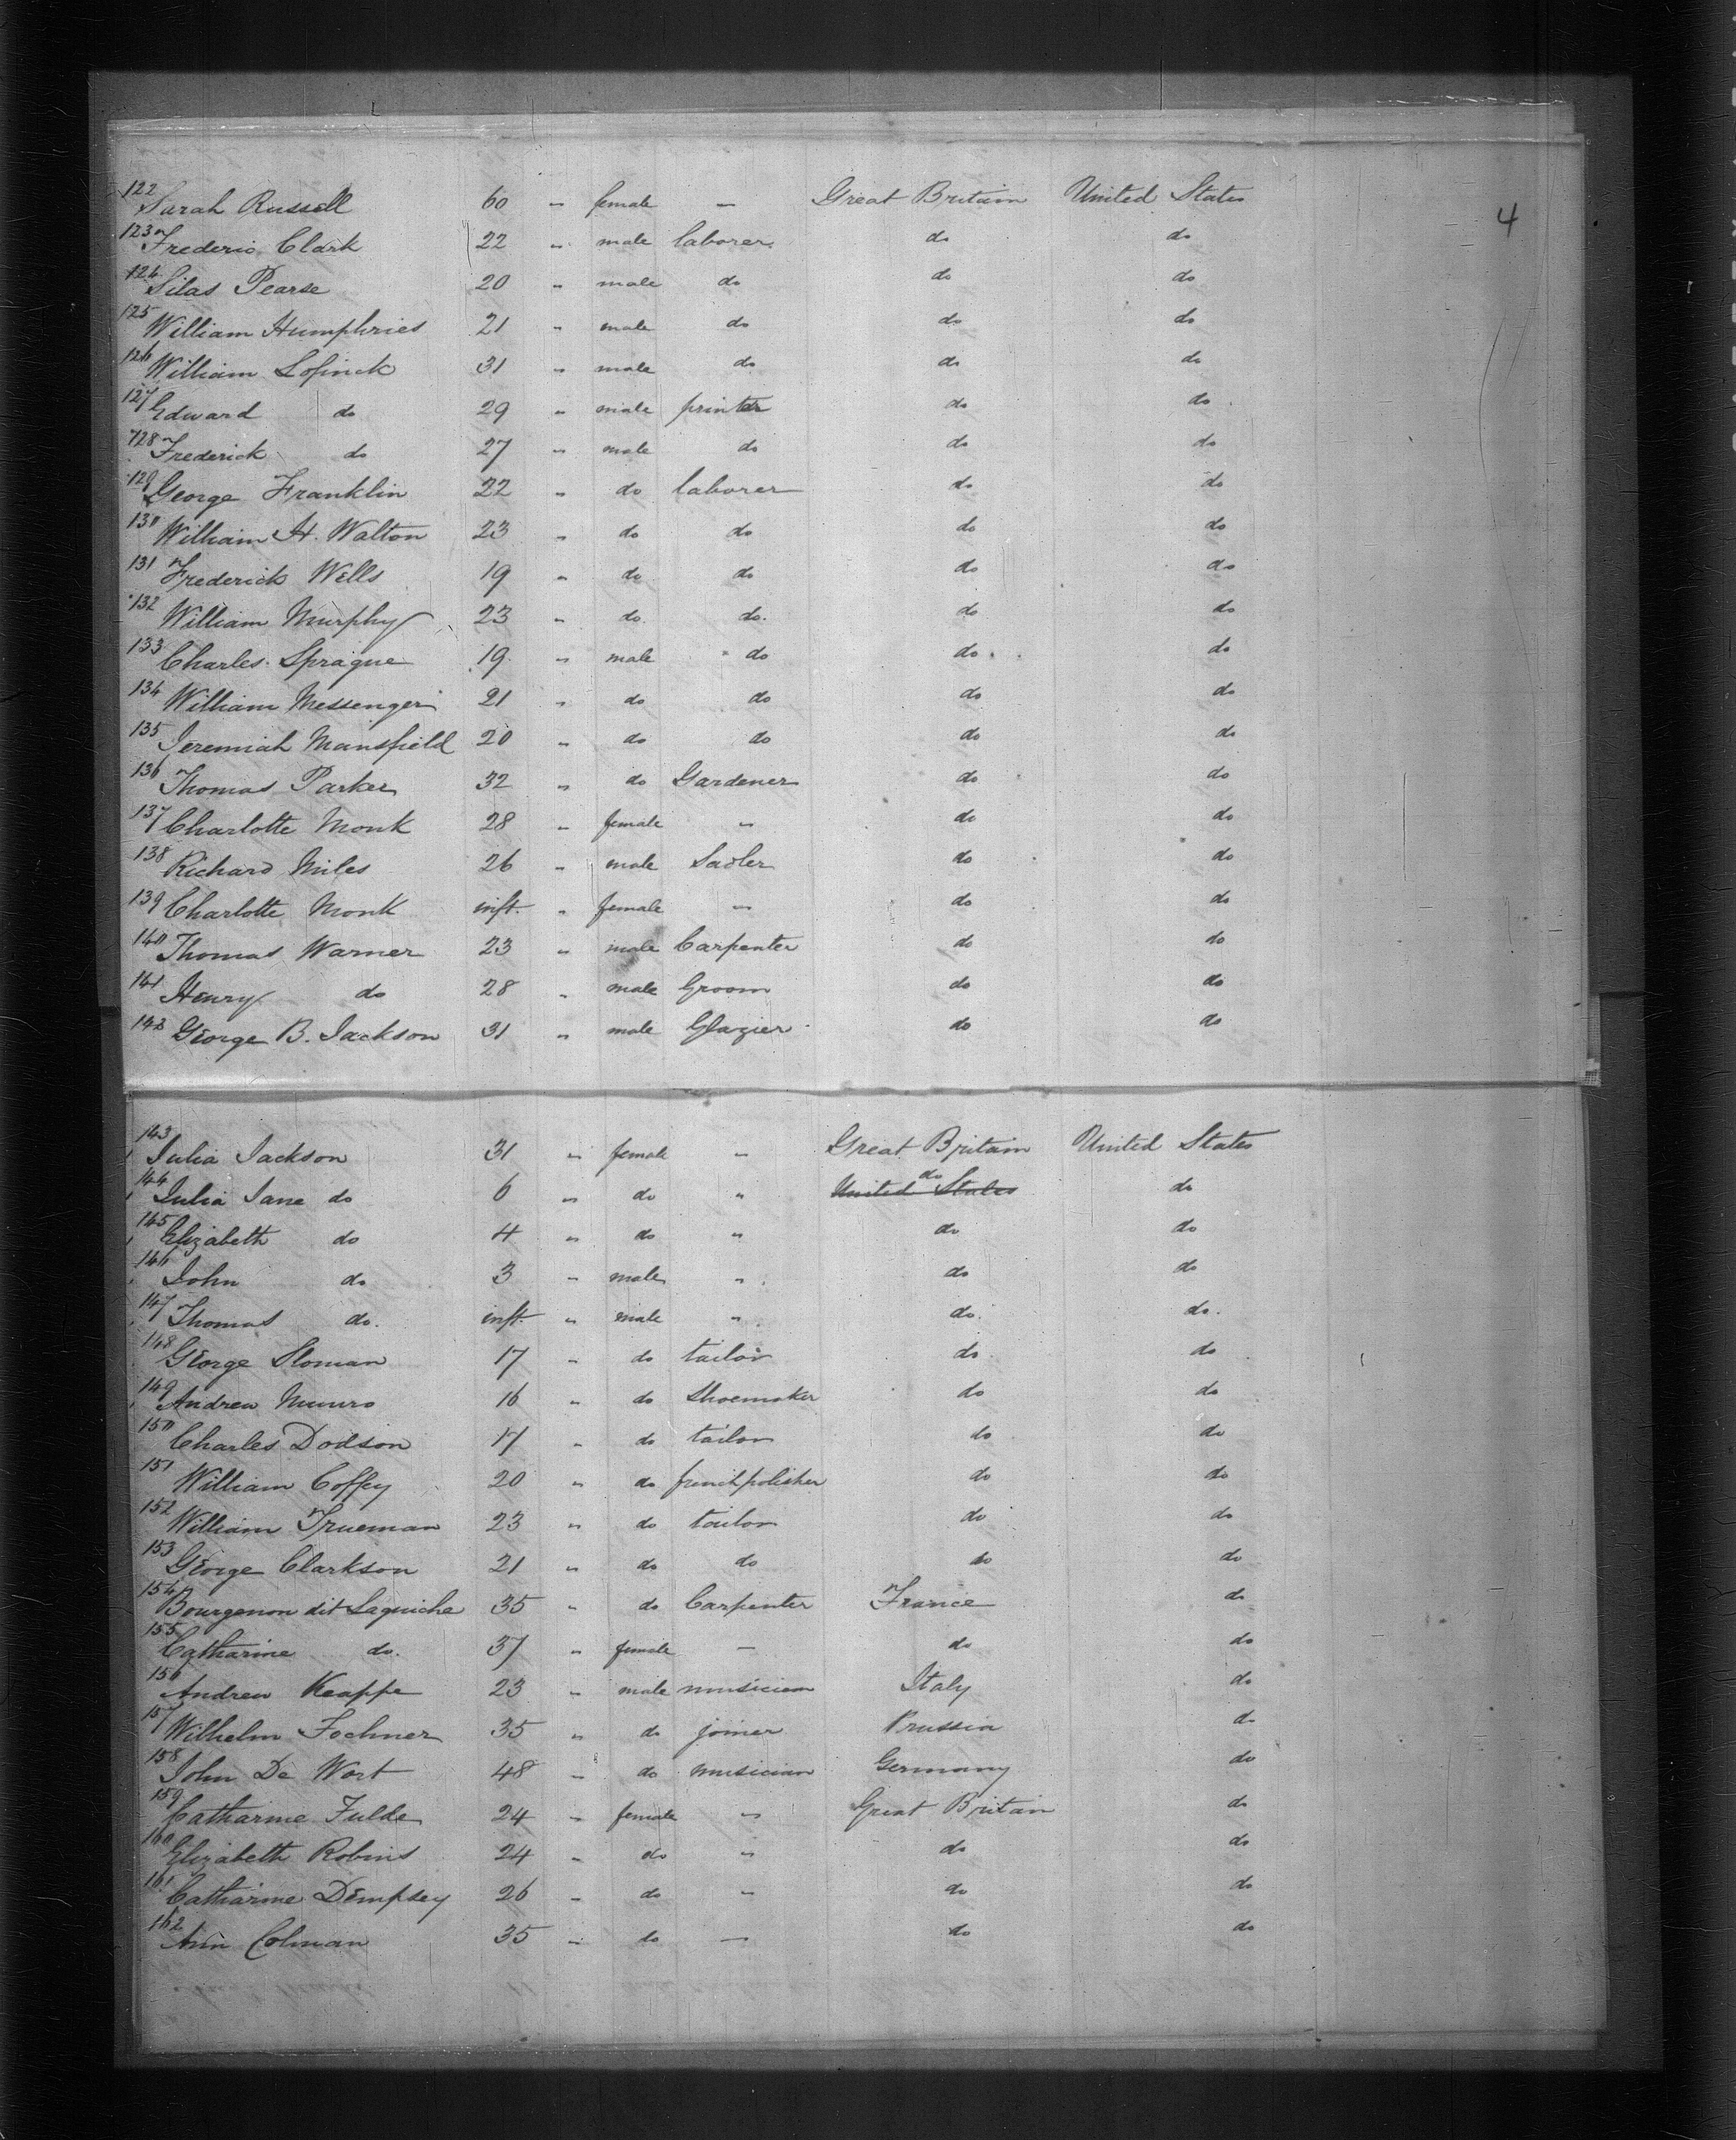 4
122 Sarah Russell 60 " female — Great Britain United States
123 Frederic Clark 22 " male laborer do do
124 Silas Pearse 20 " male do do do
125 William Humphries 21 " male do do do
126 William 31 " male do do do
127 Edward do 29 " male printer do do
128 Frederick do 27 " male do do do
129 George Franklin 22 " do laborer do do
130 William H. Walton 23 " do do do do
131 Frederick Wells 19 " do do do do
132 William Murphy 23 " do. do. do do
133 Charles Sprague 19 " male do do do
134 William Messenger 21 " do do do do
135 Jeremiah Mansfield 20 " do do do do
136 Thomas Parker 32 " do Gardener do do
137 Charlotte Monk 28 " female " do do
138 Richard Miles 26 " male Sadler do do
139 Charlotte Monk inft. " female " do do
140 Thomas Warner 23 " male Carpenter do do
141 Henry do 28 " male Groom do do
142 George B. Jackson 31 " male Glazier do do
143 Julia Jackson 31 " female " Great Britain United States
144 Julia Jane do 6 " do " United States do do
145 Elizabeth do 4 " do " do do
146 John do 3 " male " do do
147 Thomas do. inft. " male " do. do.
148 George Sloman 17 " do tailor do do
149 Andrew Munro 16 " do Shoemaker do do
150 Charles Dodson 17 " do tailor do do
151 William Coffey 20 " do frenchpolisher do do
152 William Trueman 23 " do tailor do do
153 George Clarkson 21 " do do do do
154 Bourgenon dit Laguiche 35 " do Carpenter France do
155 Catharine do. 37 " female — do do
156 Andrew Keappe 23 " male musician Italy do
157 Wilhelm Fochner 35 " do joiner Prussia do
158 John De Wort 48 " do musician Germany do
159 Catharine Fulde 24 " female " Great Britain do
160 Elizabeth Robins 24 " do " do do
161 Catharine Dempsey 26 " do " do do
162 Ann Colman 35 " do — do do